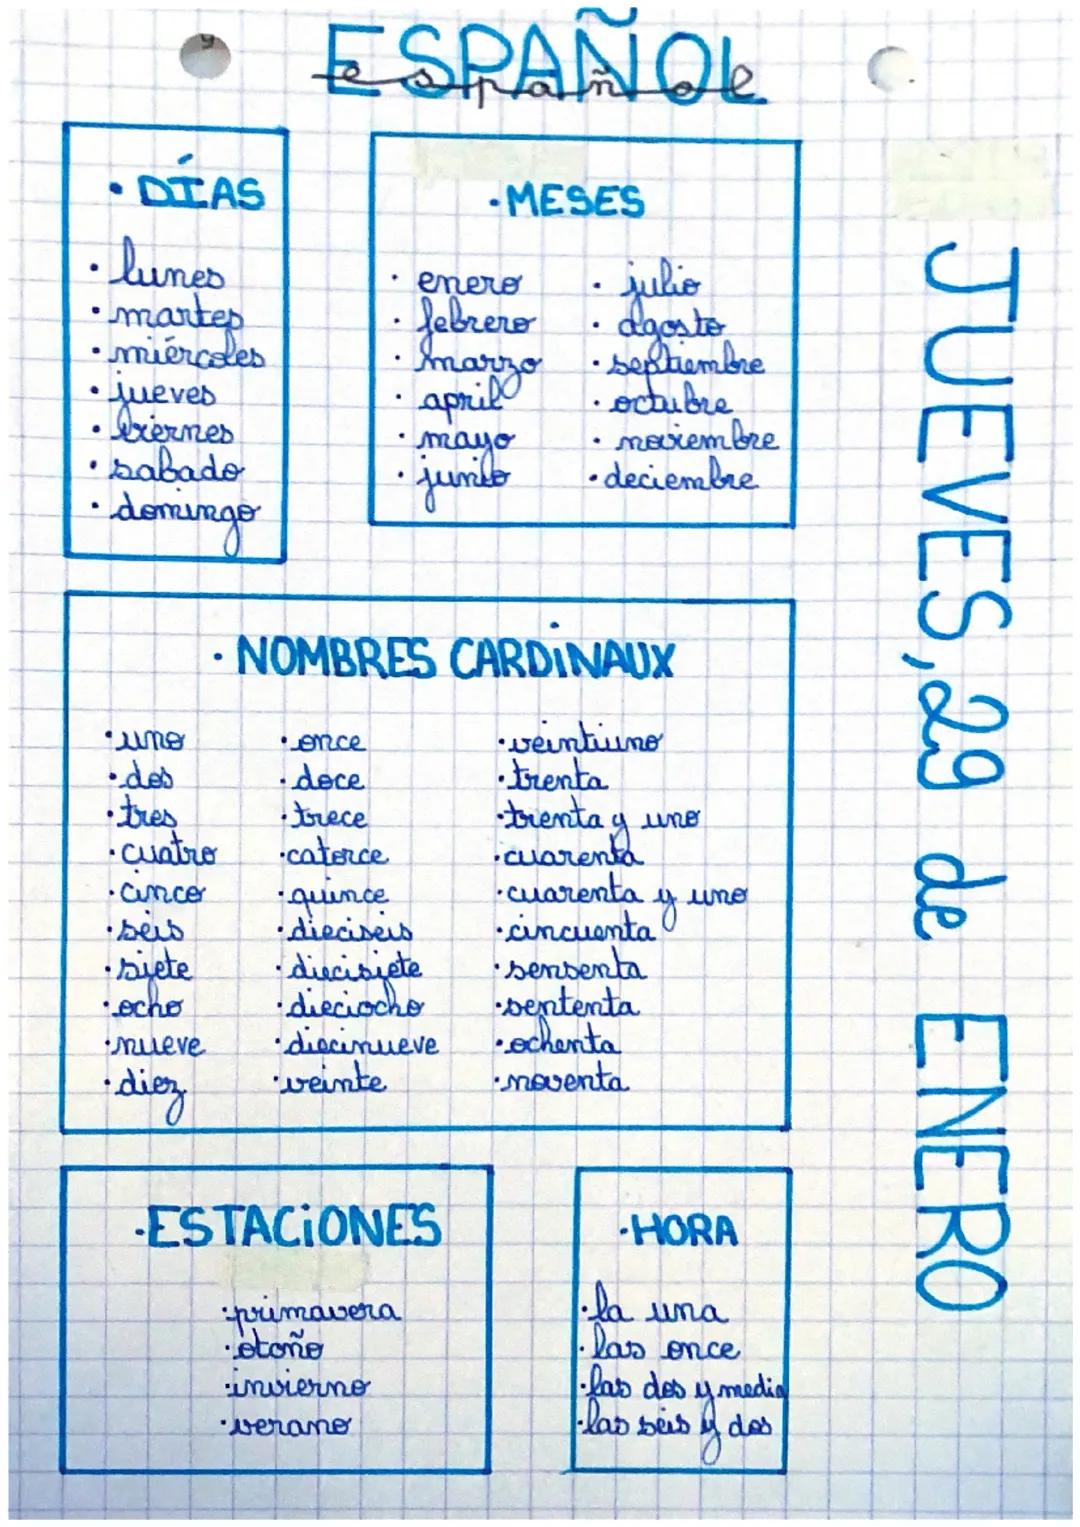 ESPAÑOL
español
· DÍAS
· lunes
· martes
· miércoles
· jueves
· viernes
· sabado
· domingo
· MESES
· enero
· febrero
· marzo
· april
· mayo
· junio
· julio
· agosto
· septiembre
· octubre
· noviembre
· deciembre
· NOMBRES CARDINAUX
· uno
· dos
· tres
· cuatro
· cinco
· séis
· siete
· ocho
· nueve
· diez
· once
· doce
· trece
· catorce
· quince
· dieciseis
· diecisiete
· dieciocho
· diecinueve
· veinte
· veintiuno
· trenta
· trenta y uno
· cuarenta
· cuarenta y uno
· cincuenta
· sensenta
· sententa
· ochenta
· noventa
· ESTACIONES
· primavera
· otoño
· invierno
· verano
· HORA
· la una
· las once
· las dos y media
· las séis y dos
JUEVES, 29 de ENERO